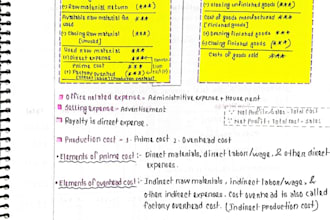 (-) Raw material return (***)
Available raw material for ***
used
(-) Closing Raw material (***)
[Unused]
Used raw material ***
(+) Direct expense ***
Prime cost ***
(+) Factory overhead (***)
(-) closing unfinished goods (***)
Cost of goods manufactured ***
[Finished goods]
(+) opening finished goods ***
(-) closing finished goods (***)
Costs of goods sold ***
Office related expense - Administritive expense + House rent
Selling expense - Advertisement
Royalty is direct expense.
Production cost - 1. Prime cost 2. Overhead cost
• Elements of prime cost :- Direct materials, direct labor/wage, & other direct
expenses.
• Elements of overhead cost :- Indirect materials, indirect labor/wage, &
other indirect expenses. Cost overhead is also called
factory overhead cost. (Indirect production cost)